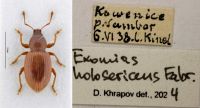 Kowenice
p. Sambor
6. VI 38. l. Kinel
Exomias
holosericeus Fabr.
D. Khrapov det., 2024